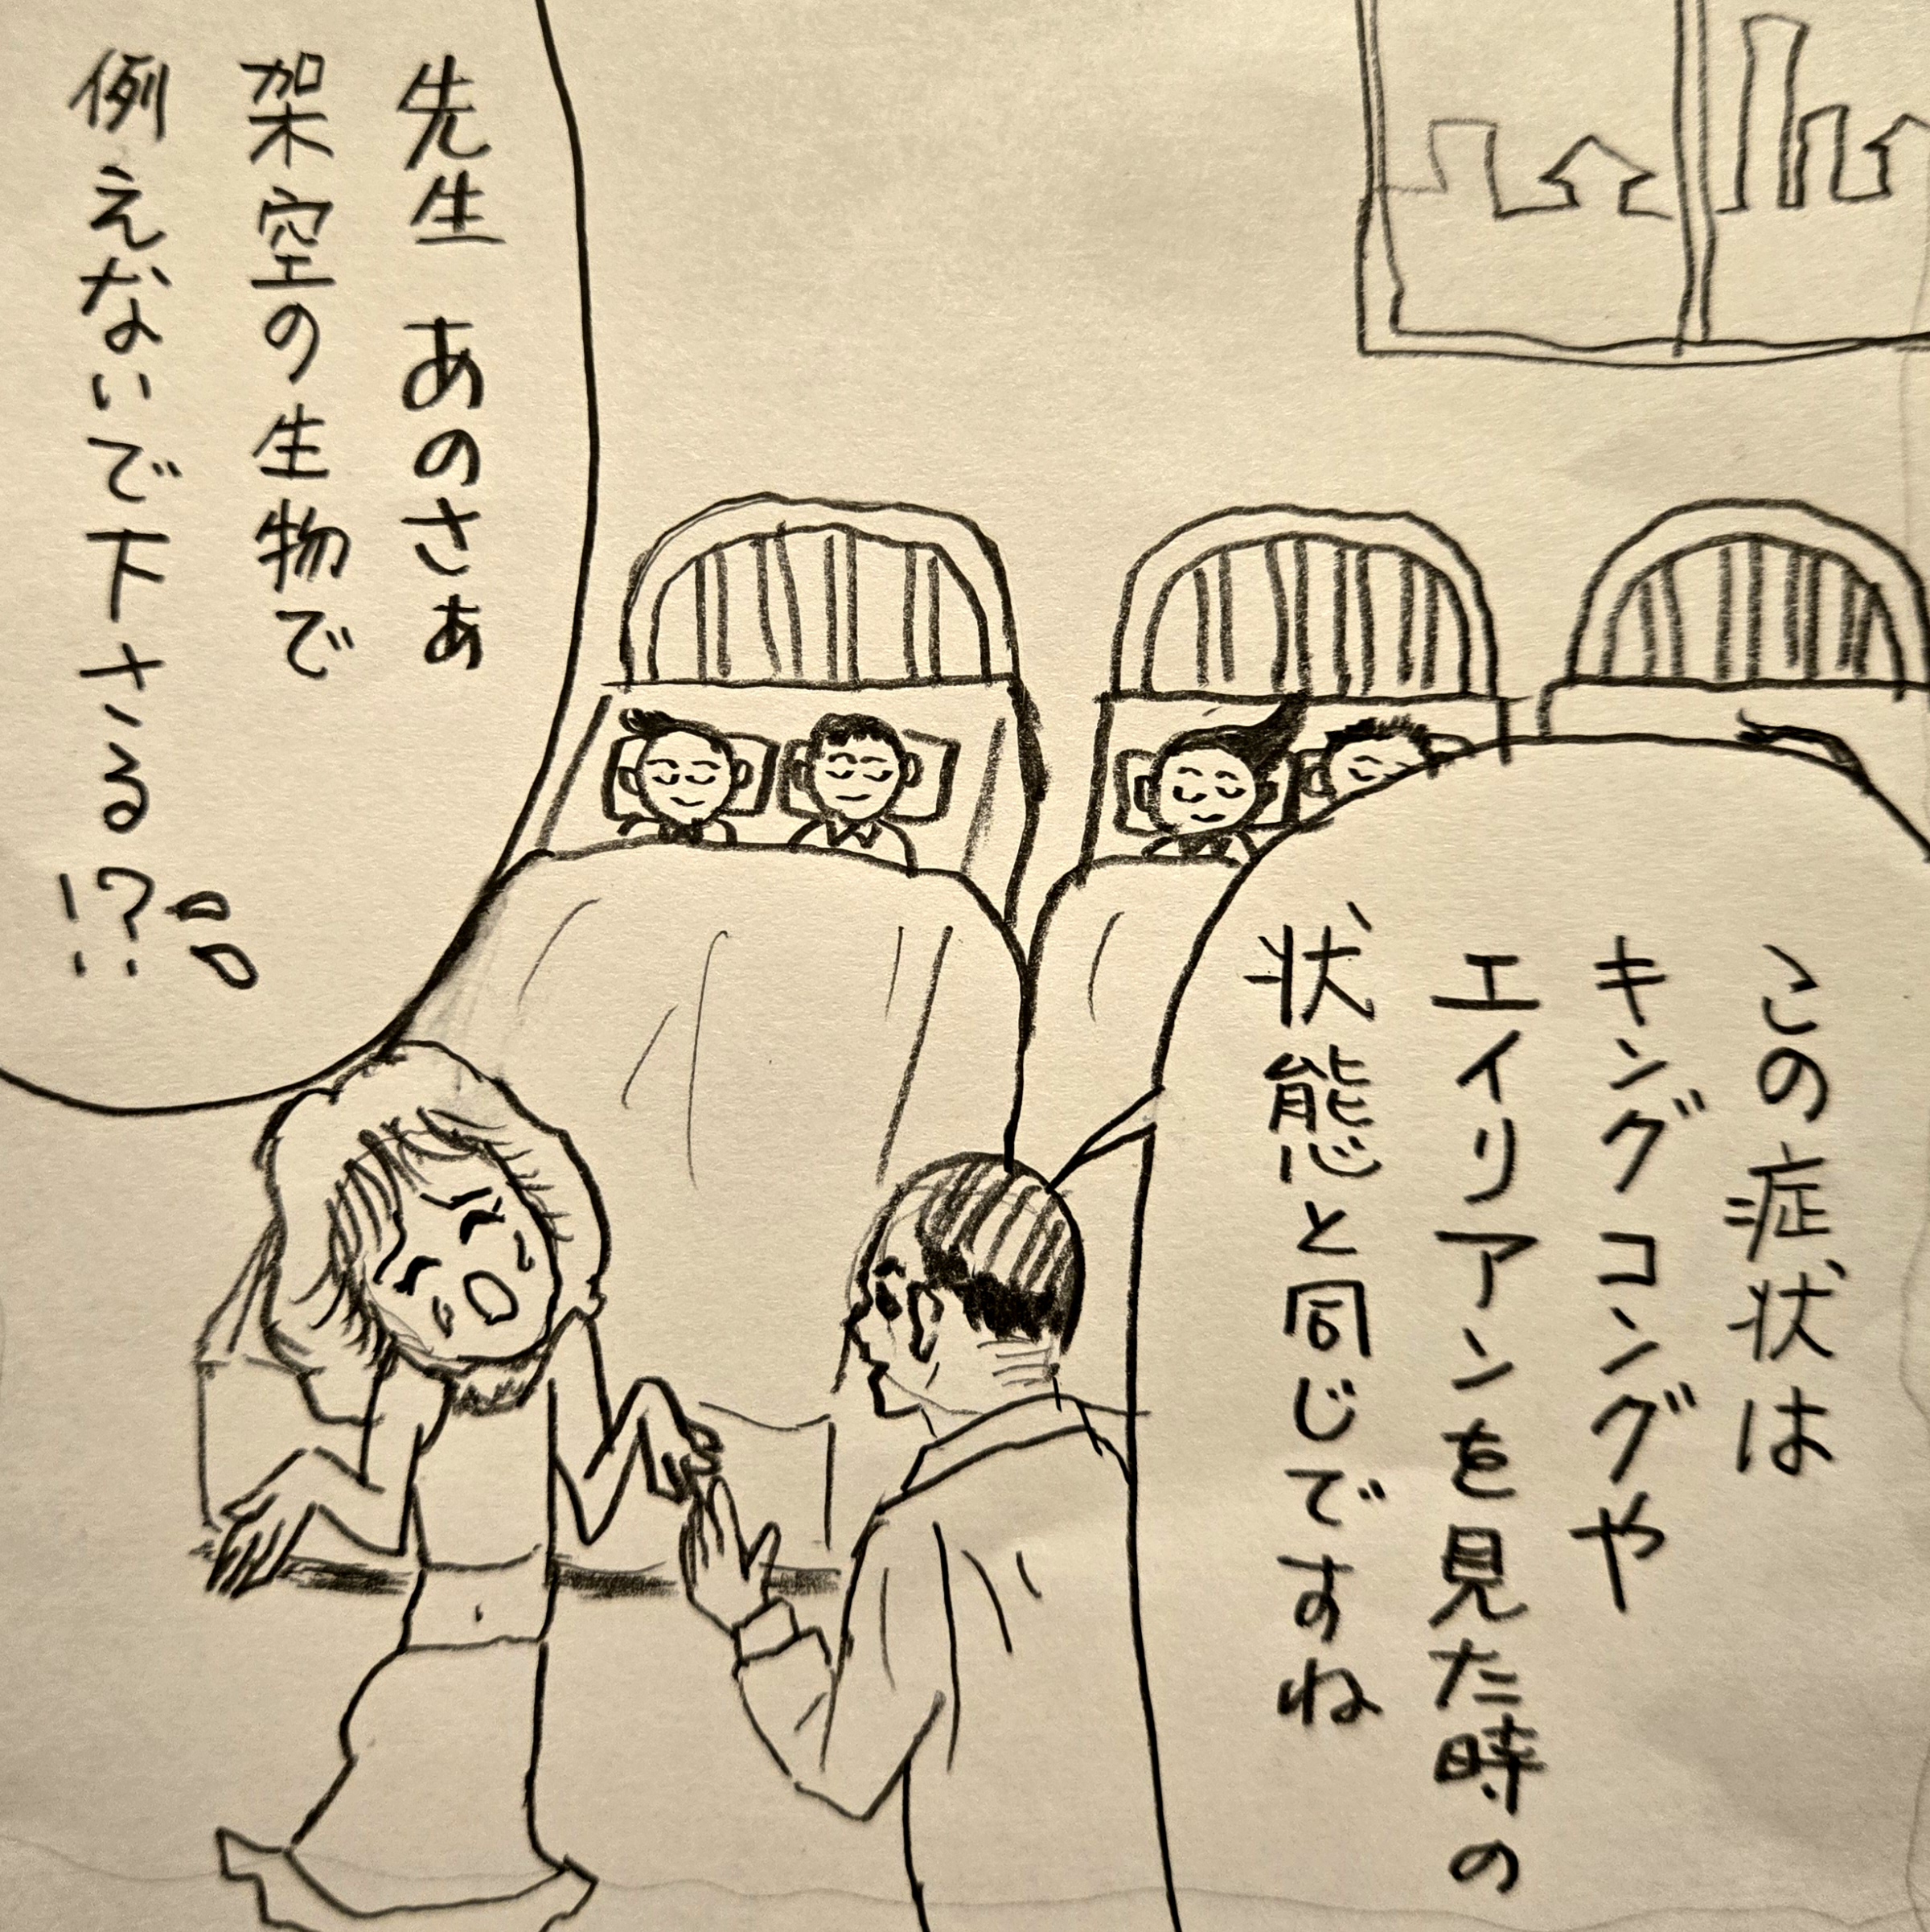 この症状は
キングコングや
エイリアンを見た時の
状態と同じですね
先生 あのさぁ
架空の生物で
例えないで下さる!?